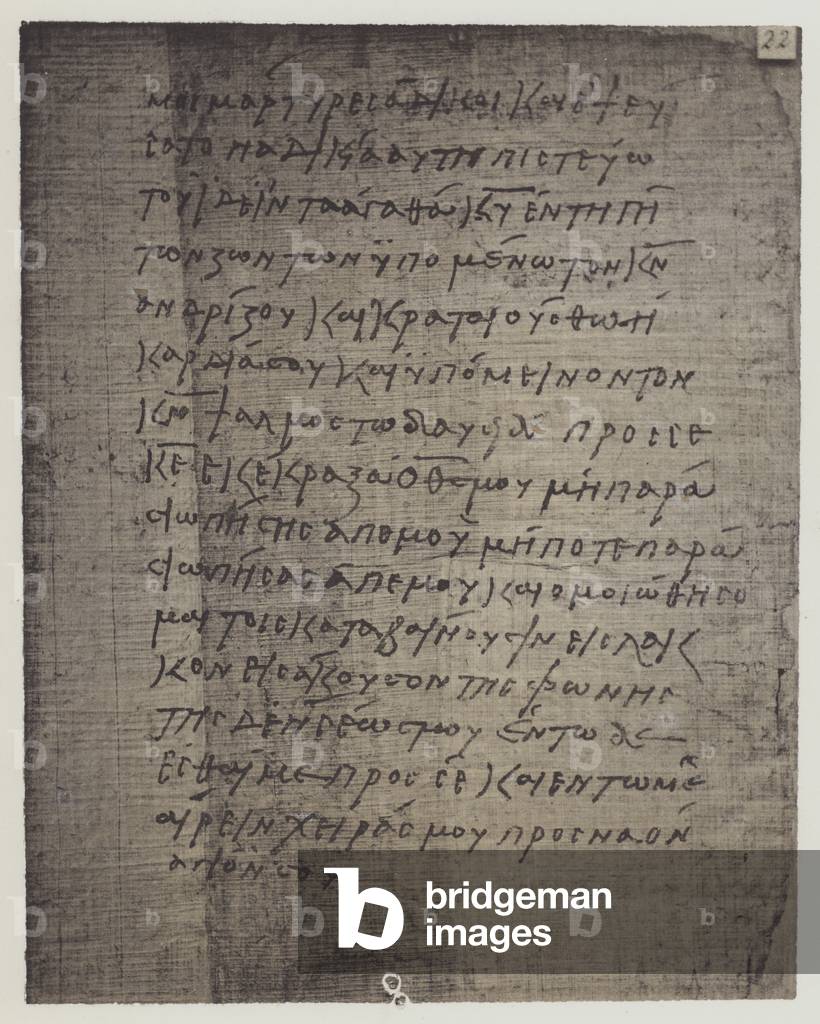 22
μοι μαρτυρες αδικοι και εψευ
σατο η αδικια αυτη πιστευω
του ιδειν τα αγαθα κυ εν τη γη
των ζωντων ϋπομενωτον κν
ανδριζου και κραταιουσθω η
καρδια σου και ϋπομεινον τον
κν ψαλμος τω δαυιδ προσ σε
κε εκεκραξα ο θς μου μη παρα
σιωπησης απ εμου μηποτε παρα
σιωπησας απ εμου και ομοιωθησο
μαι τοις καταβαινουσιν εις λακ
κον εισακουσον της φωνης
της δεησεως μου εν τω δε
εσθαι με προς σε και εν τω με
αιρειν χειρας μου προς ναον
αγιον σου
bridgeman
images